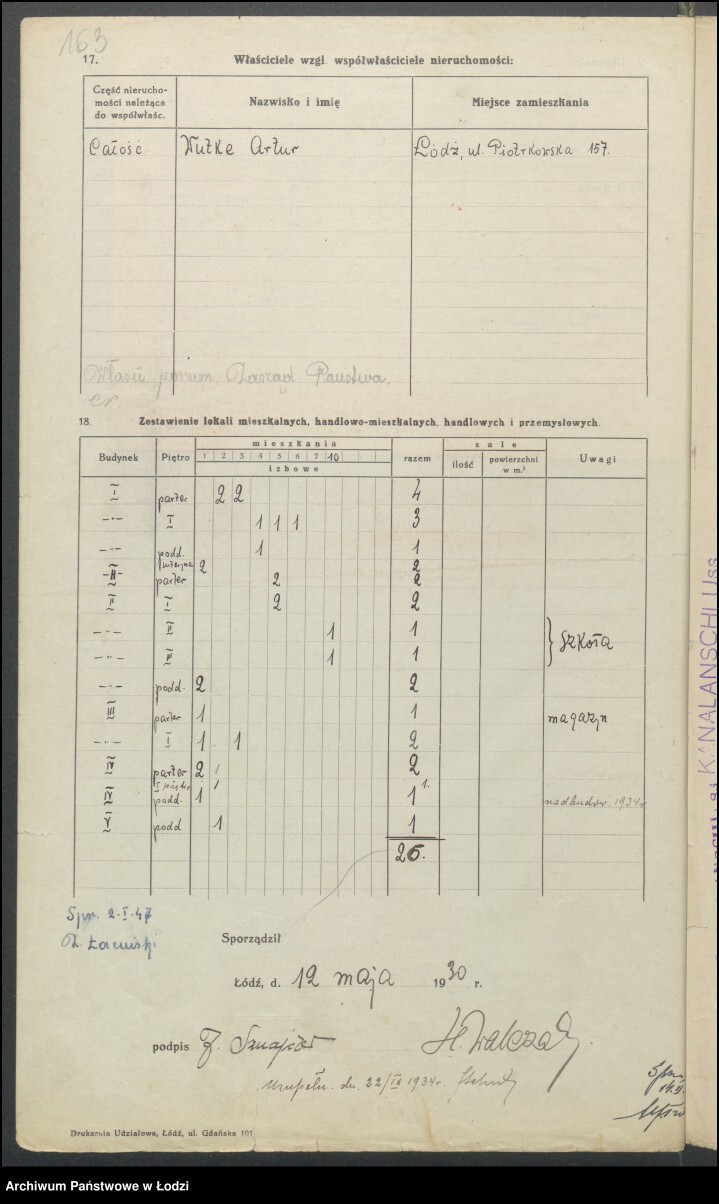 163
17. Właściciele wzgl. współwłaściciele nieruchomości:
Część nierucho-
mości należąca
do współwłaśc.
Nazwisko i imię
Miejsce zamieszkania
Całość Wutke Artur Łódź, ul. Piotrkowska 157.
Zarząd Państwa.
18. Zestawienie lokali mieszkalnych, handlowo-mieszkalnych, handlowych i przemysłowych.
Budynek Piętro mieszkania razem sale Uwagi
1 2 3 4 5 6 7 10 ilość powierzchni
w m.²
izbowe
I parter 2 2 4
-"- I 1 1 1 3
-"- podd. 1 1
2 2
-II- parter 2 2
II I 2 2
-"- II 1 1 } Szkoła
-"- III 1 1
-"- podd. 2 2
III parter 1 1 magazyn
-"- I 1 1 2
IV parter 2 2
I piętro 1 1.
IV podd. 1 1 nadbudow. 1934 r
V podd 1 1
26.
Spr. 2-I-47
Sporządził
Łódź, d. 12 maja 1930 r.
podpis
H. Walczak
Uzupełn. dn. 22/IX 1934 r.
Spr.
Drukarnia Udziałowa, Łódź, ul. Gdańska 101
KANALANSCHLUSS
Archiwum Państwowe w Łodzi